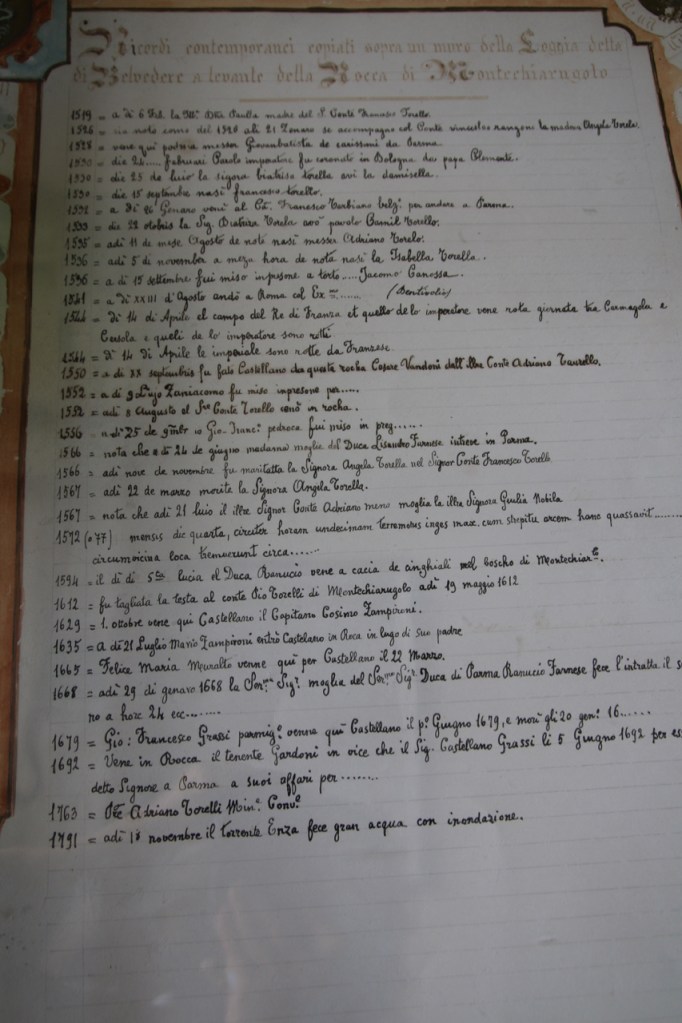 Ricordi contemporanei copiati sopra un muro della Loggia detta
di Belvedere a levante della Rocca di Montechiarugolo
1519 = a di 6 Feb. la Ill. Dna Paulla madre del S. Conte Francesco Torello.
1526 = nota anno del 1526 ali 21 Zenaro se accompagno col Conte Angela Torela.
1528 = vene qui podesta messer Giovanbatista de carissimi da Parma.
1530 = die 24..... februari Carolo imperatore fu coronato in Bologna da papa Clemente.
1530 = die 25 de luio la signora beatrisa torella avi la damisella.
1530 = die 15 septembre nasi francesco torello.
1532 = a di 26 Genaro veni al Ct. Francesco Torbiano per andare a Parma.
1533 = die 22 otobris la Sig. Beatrira Torela avo pavolo Camil Torello.
1535 = adi 11 de mese Agosto de note nasi messer Adriano Torelo.
1536 = adi 5 di november a meza hora de nota nasi la Isabella Torella.
1536 = a di 15 settembre fui miso inpresone a torto.....Jacomo Canossa.
1541 = a di XXIII d'Agosto andò a Roma col Ex.mo....... (Bentivolio)
1544 = di 14 di Aprile el campo del Re di Franza et quello de lo imperatore vene rota giornata tra Carmagola e
Cersola e queli de lo imperatore sono rotti
1544 = di 14 di Aprile le imperiale sono rotte da Franzese.
1550 = a di XX septembris fu fato Castellano da questa rocha Cesare Vandoni dall'Illre Conte Adriano Taurello.
1552 = a di 9 Lujo Zaniacomo fu miso inpresone per.....
1552 = adi 8 Augusto el Sre Conte Torello cenò in rocha.
1556 = adi 25 de 9mbr io Gio-Franc. pedroca fui miso in preg.......
1566 = nota che a di 24 de giugno madama moglie del Duca Lisandro Farnese intrere in Parma.
1566 = adi nove de novembre fu maritatta la Signora Angela Torella nel Signor Conte Francesco Torelli
1567 = adi 22 de marzo morite la Signora Angela Torella.
1567 = nota che adi 21 luio il illre Signor Conte Adriano meno moglia la illre Signora Giulia Nobila
1572 (o 77) mensis die quarta, circiter horam undecimam terremotus inges max. cum strepitu arcem hanc quassavit.......
circumvicina loca tremuerunt circa......
1594 = il di di S.ta lucia el Duca Ranucio vene a cacia de cinghiali nel boscho di Montechiar.lo
1612 = fu tagliata la testa al conte Pio Torelli di Montechiarugolo adi 19 maggio 1612
1629 = 1. ottobre vene qui Castellano il Capitano Cosimo Zampironi.
1635 = A di 21 Luglio Mario Zampironi entrò Castelano in Roca in lugo di suo padre
1665 = Felice Maria Muralto venne qui per Castellano il 22 Marzo.
1668 = adi 29 di genaro 1668 la Ser.ma Sig.ra moglie del Ser.mo Sig.r Duca di Parma Ranuccio Farnese fece l'intratta il s
no a hore 24 ecc........
1679 = Gio: Francesco Grassi parmig.o venne qui Castellano il p.o Giugno 1679, e morì gli 20 gen.o 16......
1692 = Vene in Rocca il tenente Gardoni in vice che il Sig. Castellano Grassi li 5 Giugno 1692 per es
detto Signore a Parma a suoi affari per........
1763 = Fte Adriano Torelli Min.e Conv.e
1791 = adi 18 novembre il torrente Enza fece gran acqua con inondazione.